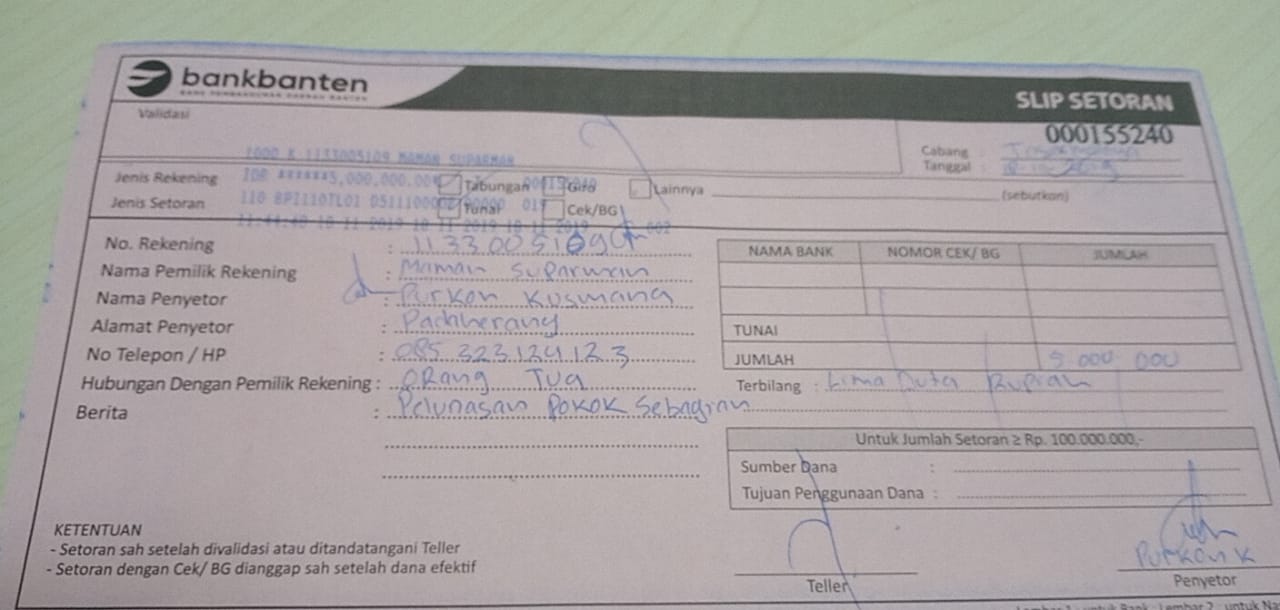 bankbanten
SLIP SETORAN
000155240
Validasi
1000 K 1133005109 MAMAN SUPARMAN
Cabang :
Tanggal :
IDR ******5,000,000.00
Jenis Rekening Tabungan Giro Lainnya (sebutkan)
Jenis Setoran Tunai Cek/BG
11:44:40 18-11-2019 18-11-2019 18-11-2019
No. Rekening : 1133005109
Nama Pemilik Rekening : Maman Suparman
Nama Penyetor : Purkon Kusmana
Alamat Penyetor :
No Telepon / HP : 085 323 124 123
Hubungan Dengan Pemilik Rekening : ORang Tua
Berita : Pelunasan Pokok Sebagian
NAMA BANK NOMOR CEK/ BG JUMLAH
TUNAI
JUMLAH 5 000 000
Terbilang : Lima Juta Rupiah
Untuk Jumlah Setoran ≥ Rp. 100.000.000,-
Sumber Dana :
Tujuan Penggunaan Dana :
KETENTUAN
- Setoran sah setelah divalidasi atau ditandatangani Teller
- Setoran dengan Cek/ BG dianggap sah setelah dana efektif
Teller
Purkon K
Penyetor